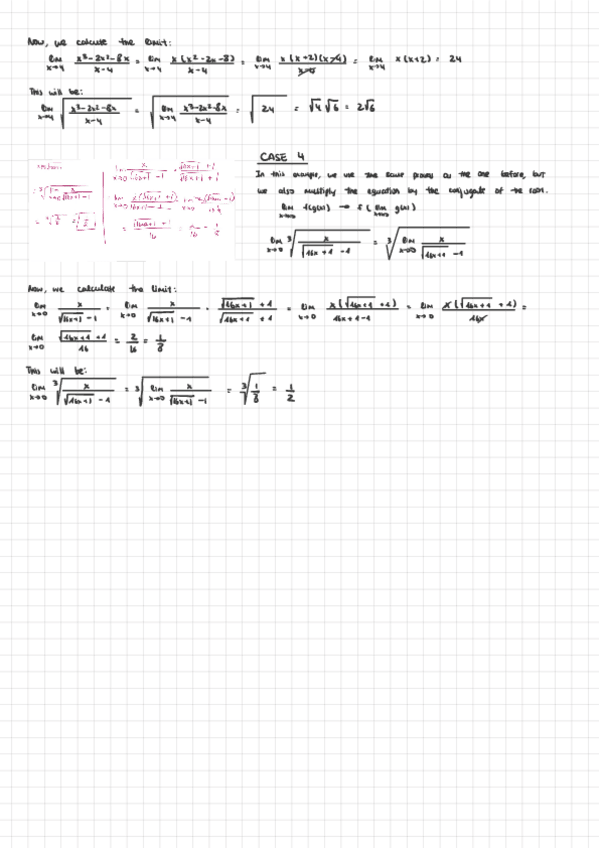 Now, we calculate the limit:
lim x→4 (x³-2x²-8x)/(x-4) = lim x→4 x(x²-2x-8)/(x-4) = lim x→4 x(x+2)(x-4)/(x-4) = lim x→4 x(x+2) = 24
This will be:
lim x→4 √((x³-2x²-8x)/(x-4)) = √(lim x→4 (x³-2x²-8x)/(x-4)) = √24 = √4 √6 = 2√6
CASE 4
In this example, we use the same process as the one before, but
we also multiply the equation by the conjugate of the root.
lim f(g(x)) → f(lim g(x))
lim x→0 ³√(x/(√(16x+1) -1)) = ³√(lim x→0 x/(√(16x+1) -1))
Now, we calculate the limit:
lim x→0 x/(√(16x+1) -1) = lim x→0 x/(√(16x+1) -1) · (√(16x+1) +1)/(√(16x+1) +1) = lim x→0 x(√(16x+1) +1)/(16x+1-1) = lim x→0 x(√(16x+1) +1)/16x =
lim x→0 (√(16x+1) +1)/16 = 2/16 = 1/8
This will be:
lim x→0 ³√(x/(√(16x+1) -1)) = ³√(lim x→0 x/(√(16x+1) -1)) = ³√(1/8) = 1/2